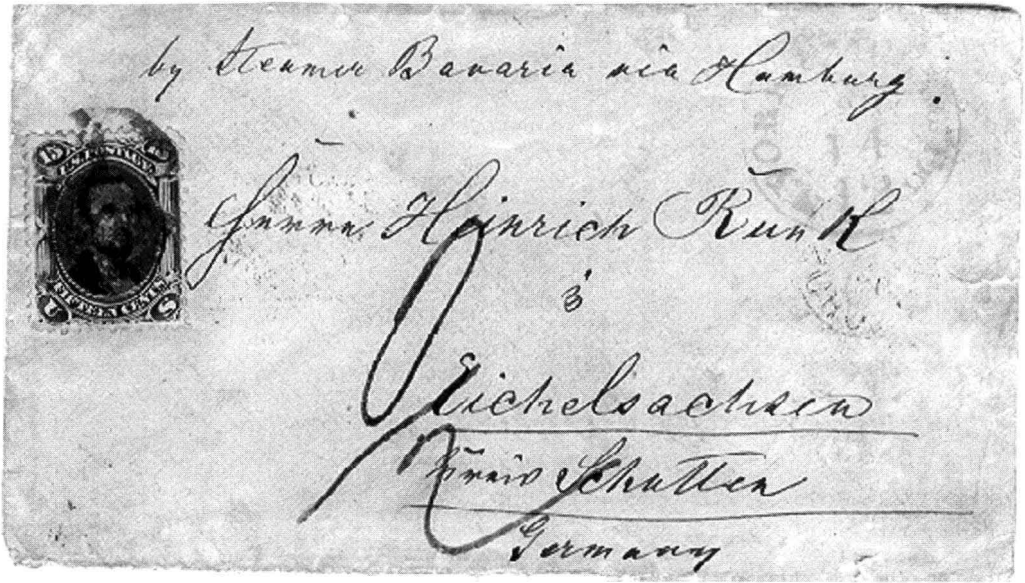 by Steamer Bavaria via Hamburg.
Herrn Heinrich Runk
Eichelsachsen
Kreis Schotten
Germany
15 15
U.S. POSTAGE
FIFTEEN CENTS
U S
14